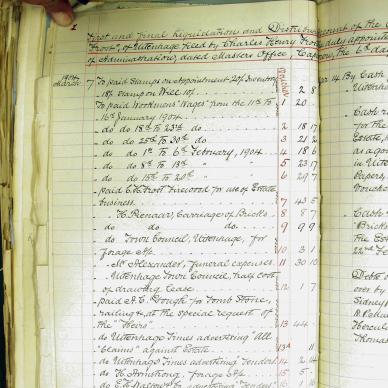 First and Final Liquidation and Distribution of the
Trost", of Uitenhage filed by Charles Henry Trost duly appointed
of Administration, dated Masters Office, Capetown, the 6th da
1904
March 7 To paid Stamps on Appointment 20/- Inventory
18/- Stamp on Will 10/- 2 8
To paid Workmens' Wages from the 11th to 1 20
16th January 1904
do do 18th to 23rd do 2 18 17
do do 25th to 30th do 3 21 2
do do 1st to 6th February, 1904 4 18 6
do do 8th to 13th 5 23 17
do do 15th to 20th 6 29 7
paid C.H. Trost firewood for use of Estate
business 7 43 5
H. Renaar, Carriage of Bricks 8 8 7
do do do 9 9 9
do Town Council, Uitenhage, for
forage A/c 10 3 1
Alexander, funeral expenses 11 30 10
Uitenhage Town Council, half cost
of drawing lease 12 1 7
paid A.C. Gough for Tomb Stone,
railing &c at the special request of
the "Heirs" 13 44
do Uitenhage Times advertising "All
Claims" against Estate 13A 11
do Uitenhage Times advertising Tenders 14 2 14
do H. Armstrong, forage A/c 15 5
Vouchers
14 By Cash
Uitenha
Cash r
for the
Estate,
as agon
in Uite
Papers,
Vouche
Cash
"Bricks
the Est
22nd Fe
Debts
over by
Sidney
Hercul
Thomas